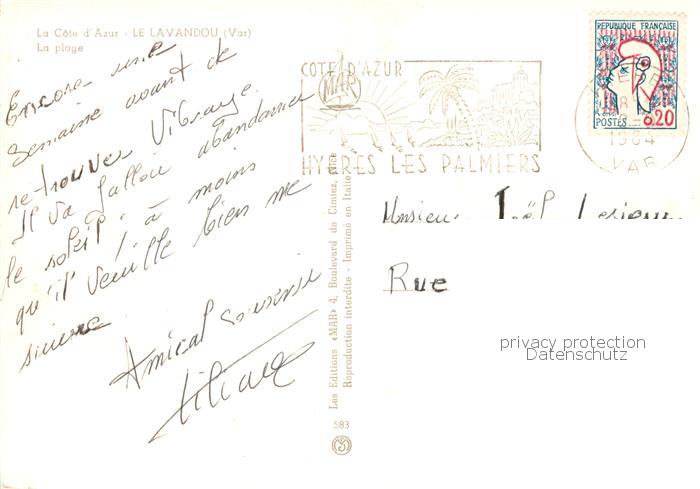 La Côte d'Azur - LE LAVANDOU (Var)
La plage
Encore une
semaine avant de
retrouver
Il va falloir abandonner
le soleil à moins
qu'il veuille bien me
suivre
Amical souvenir
Liliane
CÔTE D'AZUR
MAR
HYÈRES LES PALMIERS
RÉPUBLIQUE FRANÇAISE
POSTES 0,20
1964
VAR
Les Editions «MAR» 4, Boulevard de Cimiez, Nice
Reproduction interdite - Imprimé en Italie
583
Monsieur Joël
Rue
privacy protection
Datenschutz